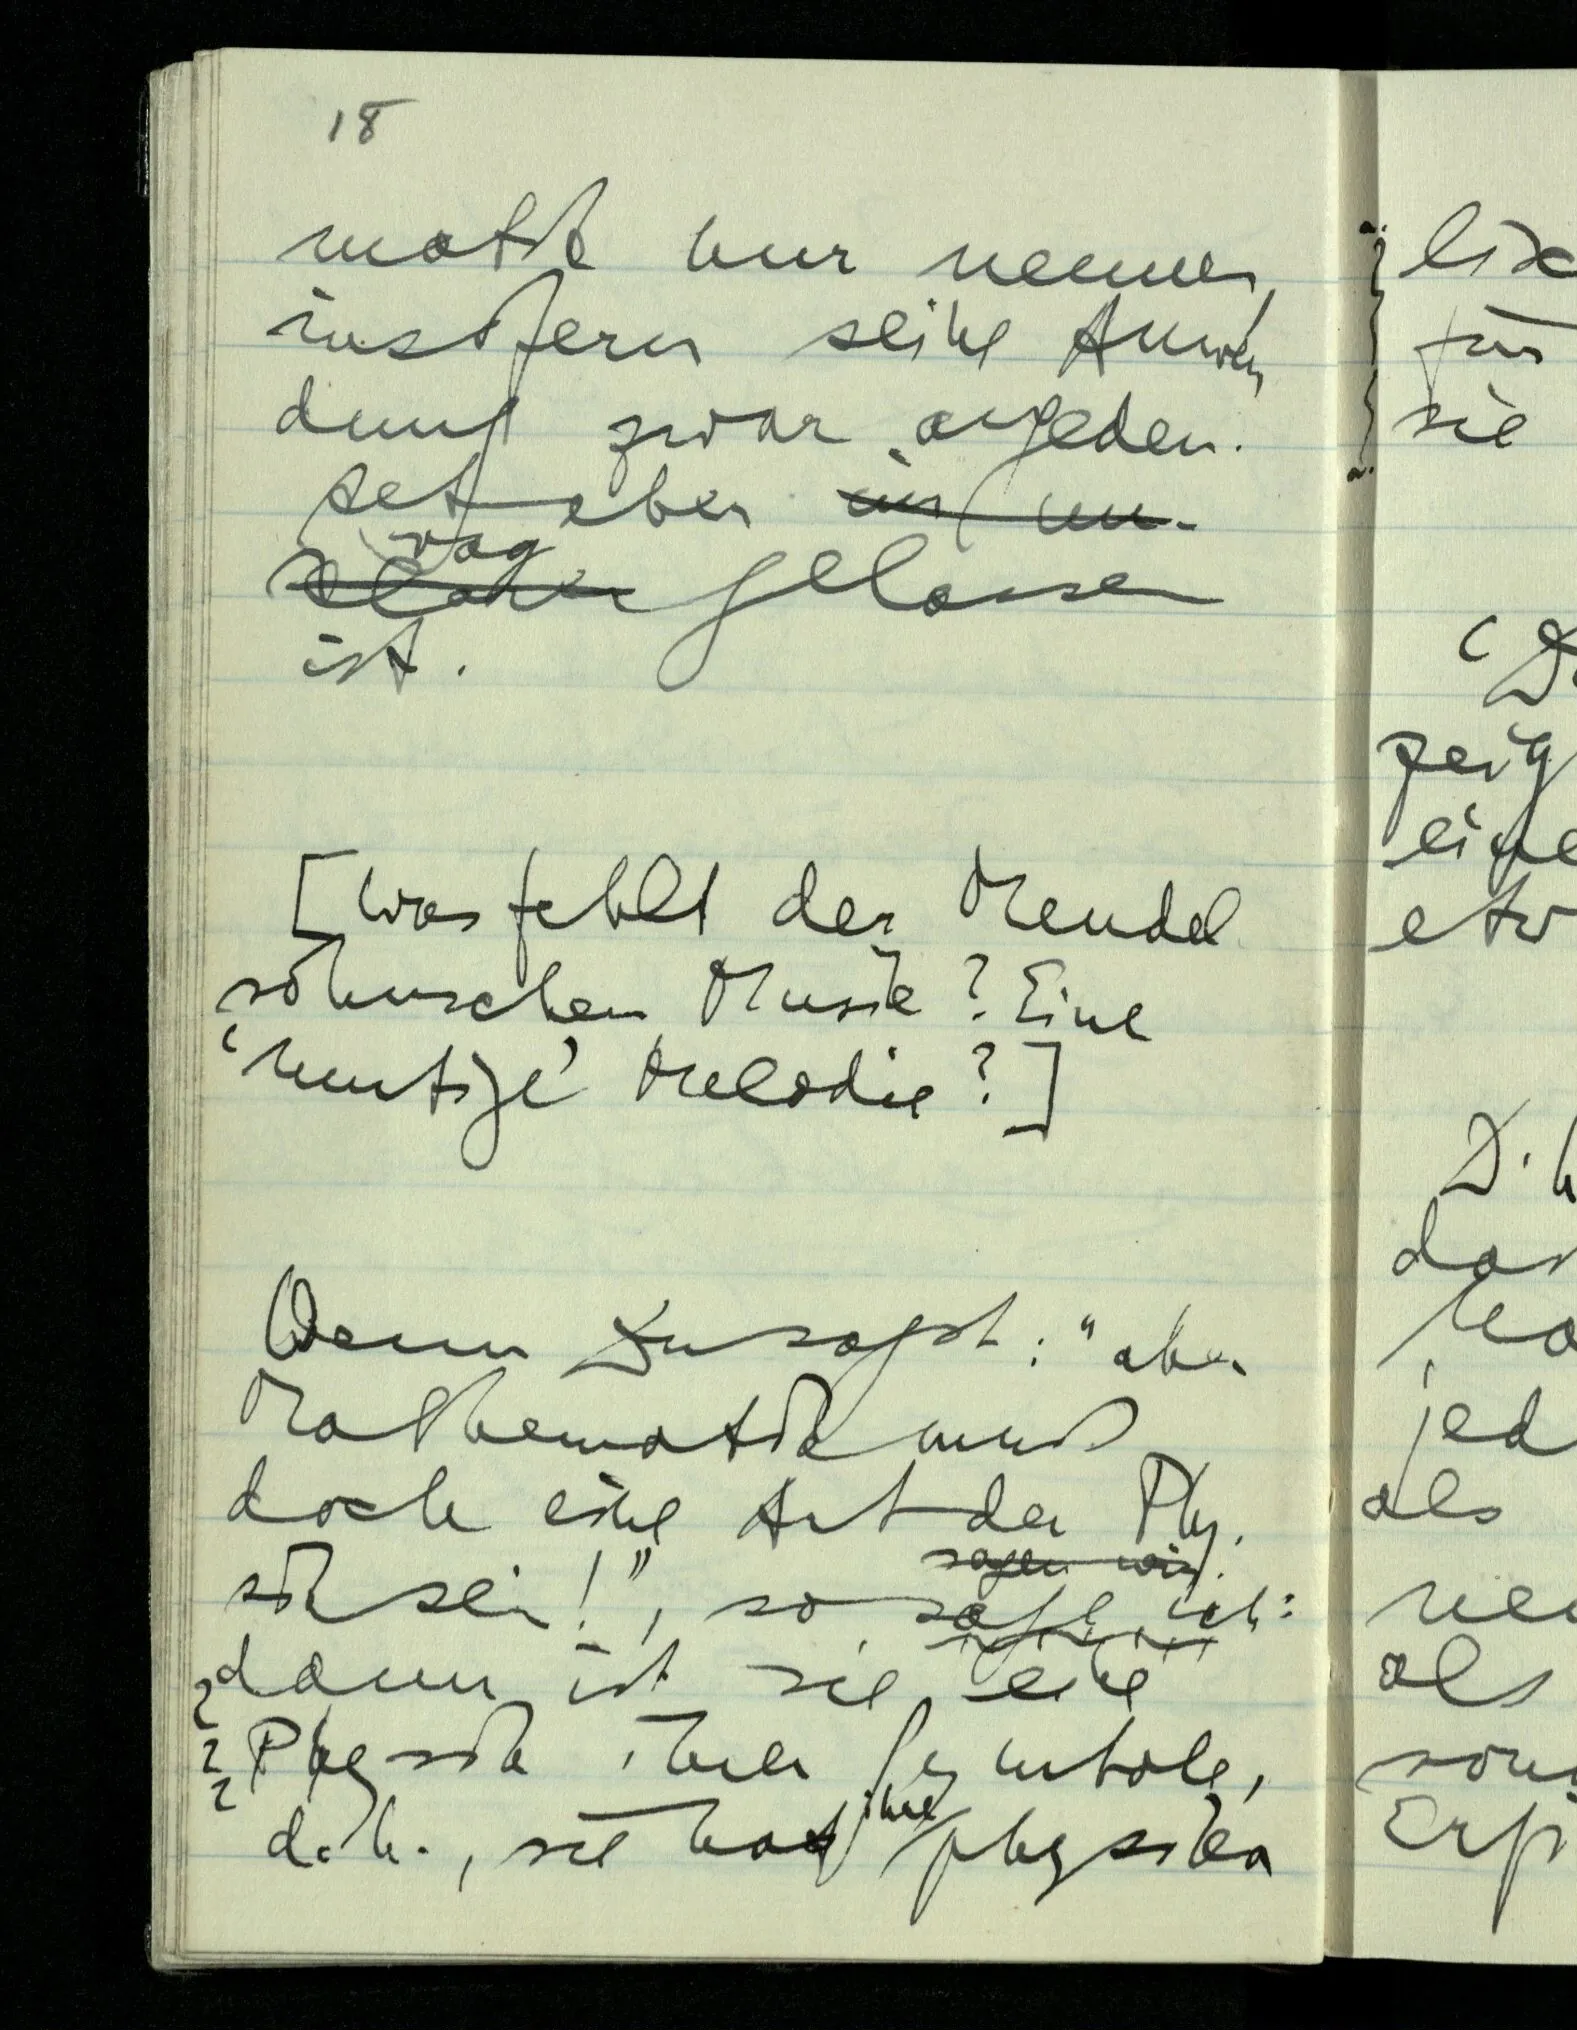 18
matik nur nennen,
insofern seine Anwen
dung zwar angedeu-
tet aber im un-
vag
klaren gelassen
ist.
[Was fehlt der Mendel
sohnschen Musik? Eine
'mutige' Melodie?]
Wenn Du sagst: "aber
Mathematik muß
doch eine Art der Phy-
sagen wir:
sik sein!", so sage ich:
dann ist sie eine
Physik ihrer Symbole,
ihre
d.h., sie hat physika
für
sie
zeig
eine
etw
D.h
das
jed
als
als